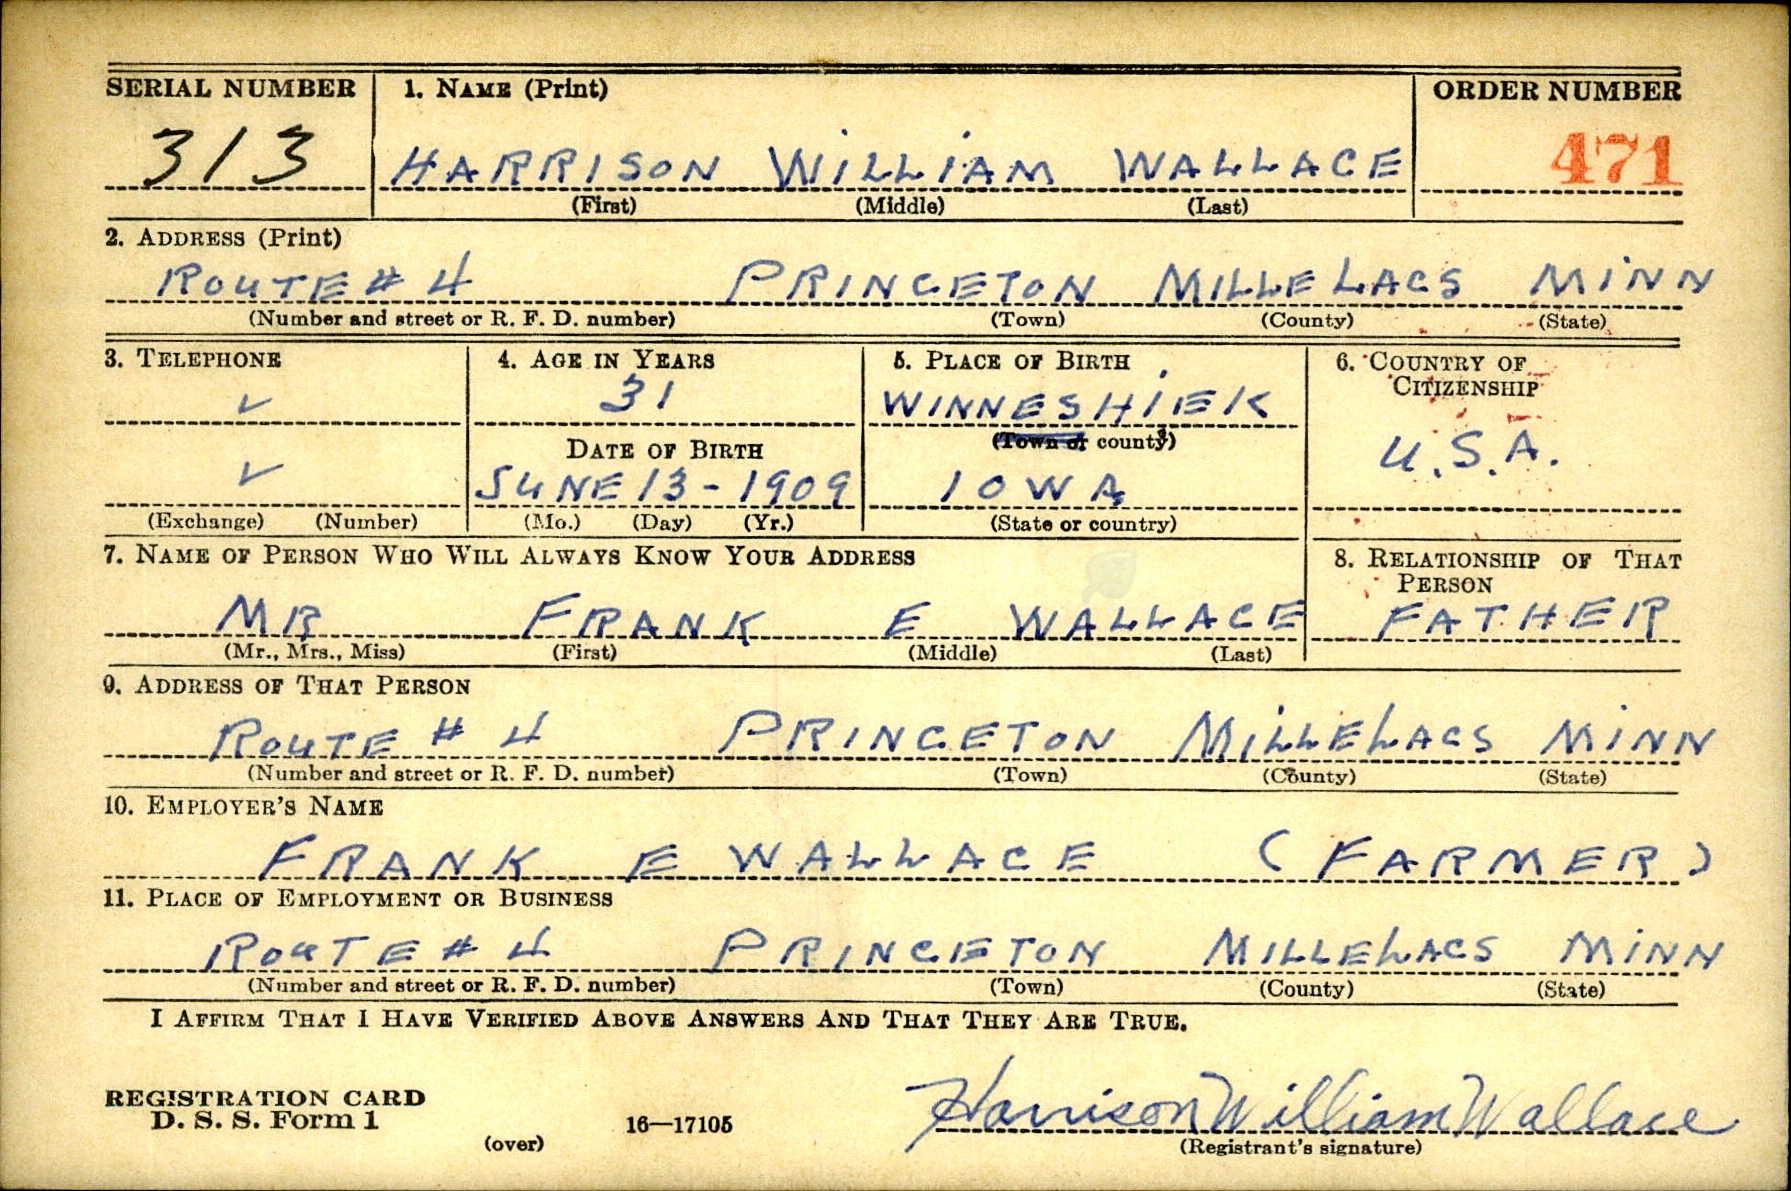 SERIAL NUMBER 1. NAME (Print) ORDER NUMBER
313 HARRISON WILLIAM WALLACE 471
(First) (Middle) (Last)
2. ADDRESS (Print)
ROUTE # 4 PRINCETON MILLE LACS MINN
(Number and street or R. F. D. number) (Town) (County) (State)
3. TELEPHONE 4. AGE IN YEARS 5. PLACE OF BIRTH 6. COUNTRY OF
CITIZENSHIP
31 WINNESHIEK
DATE OF BIRTH (Town or county) U.S.A.
JUNE 13 - 1909 IOWA
(Exchange) (Number) (Mo.) (Day) (Yr.) (State or country)
7. NAME OF PERSON WHO WILL ALWAYS KNOW YOUR ADDRESS 8. RELATIONSHIP OF THAT
PERSON
MR FRANK E WALLACE FATHER
(Mr., Mrs., Miss) (First) (Middle) (Last)
9. ADDRESS OF THAT PERSON
ROUTE # 4 PRINCETON MILLELACS MINN
(Number and street or R. F. D. number) (Town) (County) (State)
10. EMPLOYER'S NAME
FRANK E WALLACE (FARMER)
11. PLACE OF EMPLOYMENT OR BUSINESS
ROUTE # 4 PRINCETON MILLELACS MINN
(Number and street or R. F. D. number) (Town) (County) (State)
I AFFIRM THAT I HAVE VERIFIED ABOVE ANSWERS AND THAT THEY ARE TRUE.
REGISTRATION CARD
D. S. S. Form 1 16—17105 Harrison William Wallace
(over) (Registrant's signature)